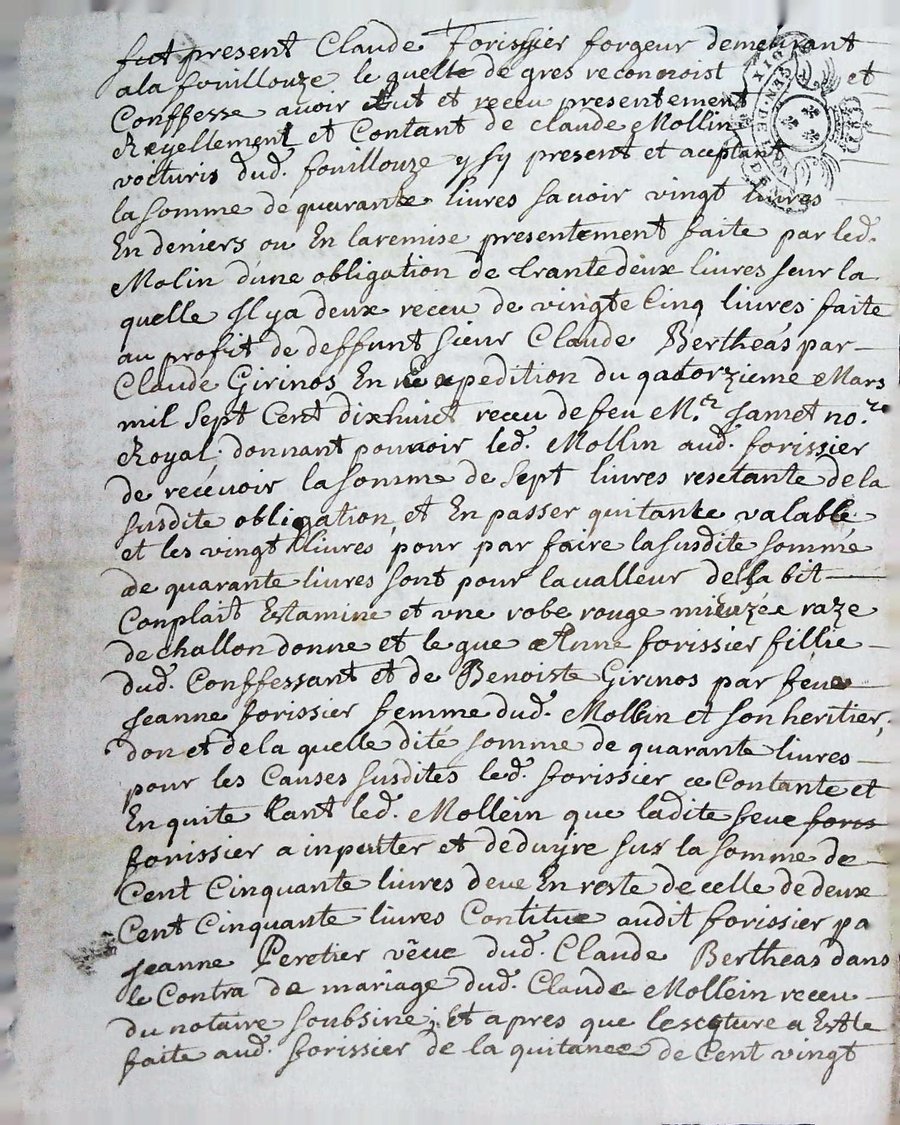 fut present Claude Forissier forgeur demeurant
a la fouillouze le quelle de gres reconnoist et
Conffesse avoir Eut et receu presentement
Reyellement et Contant de Claude Mollin
voeturis dud. fouillouze y sy present et aceptant
la somme de quarante livres savoir vingt livres
En deniers ou En la remise presentement faite par led.
Molin dune obligation de trante deux livres seur la
quelle Il y a deux receu de vingte Cinq livres faite
au profit de deffunt sieur Claude Bertheas par
Claude Girinos En expedition du qatorzieme Mars
mil sept Cent dixhuict receu de feu M.e Jamet no.re
Royal donnant pouvoir led. Mollin aud. forissier
de recevoir la somme de sept livres resetante de la
susdite obligation et En passer quitante valable
et les vingt livres pour par faire la susdite somme
de quarante livres sont pour la valleur de la bit
Conplait Estamine et une robe rouge raze
de challon donne et le gue Anne forissier fillie
dud. Conffessant et de Benoiste Girinos par feue
Jeanne forissier femme dud. Mollin et son heritier,
don et de la quelle dite somme de quarante livres
pour les Causes susdites led. forissier ce Contante et
En quite tant led. Mollein que ladite feue foris
forissier a inputter et deduyre sus la somme de
Cent Cinquante livres deue En reste de celle de deux
Cent Cinquante livres Contitue audit forissier pa
Jeanne Peretier vêue dud. Claude Bertheas dans
le Contra de mariage dud. Claude Mollein receu
du notaire soubsine; Et apres que lescture a Este
faite aud. forissier de la quitance de Cent vingt